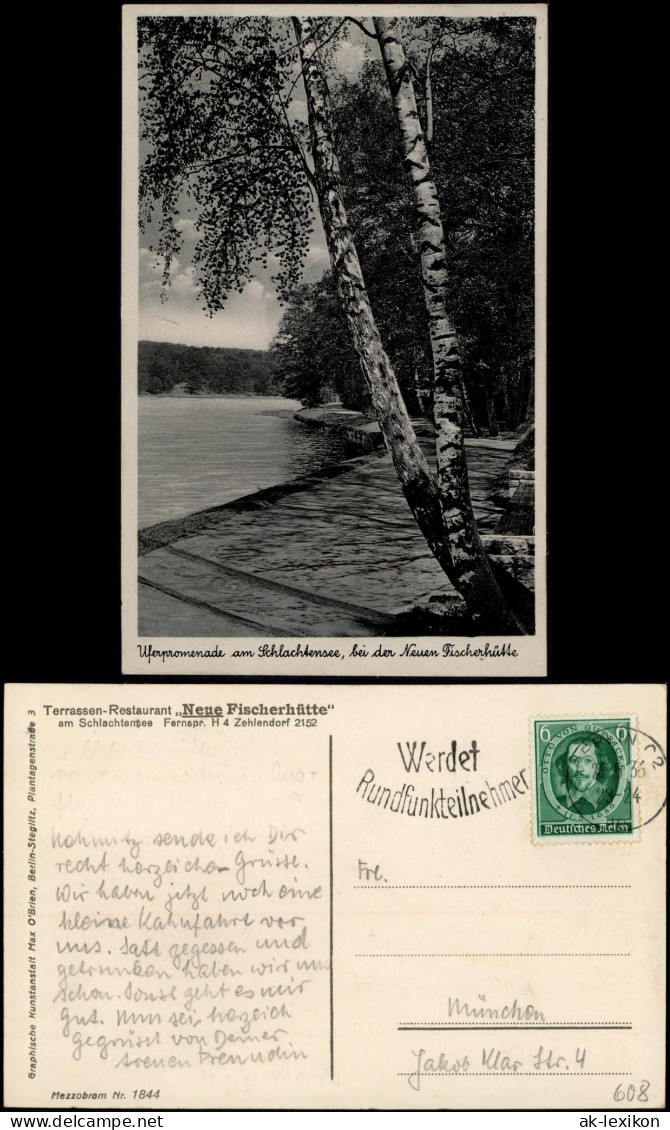 Uferpromenade am Schlachtensee, bei der Neuen Fischerhütte
Terrassen-Restaurant „Neue Fischerhütte"
am Schlachtensee Fernspr. H 4 Zehlendorf 2152
Graphische Kunstanstalt Max O'Brien, Berlin-Steglitz, Plantagenstraße 3
Werdet
Rundfunkteilnehmer
6 6
OTTO VON GUERICKE
Deutsches Reich
sende ich Dir
recht herzliche Grüsse.
Wir haben jetzt noch eine
kleine Kahnfahrt vor
uns. Satt gegessen und
getrunken haben wir uns
schon. Sonst geht es mir
gut. Nun sei herzlich
gegrüsst von Deiner
treuen Freundin
Mezzobrom Nr. 1844
Frl.
München
Jakob Klar Str. 4
608
ak-lexikon